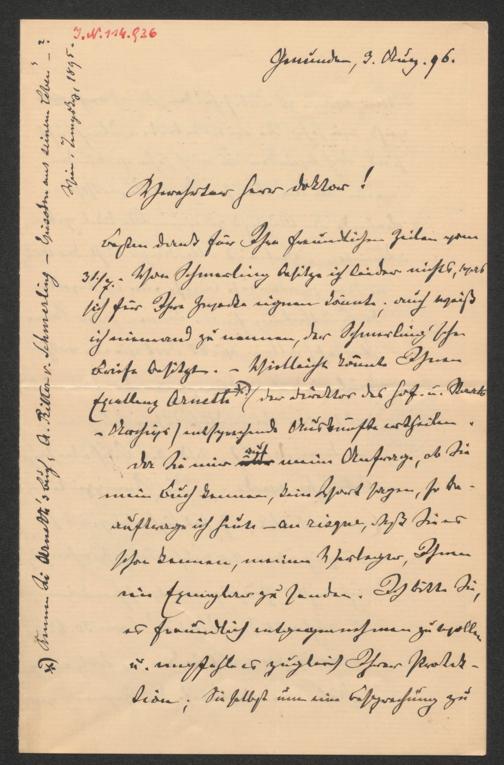 J.N. 114.936
Gmunden, 3. Aug. 96.
Verehrter Herr Doktor!
Besten Dank für Ihre freundlichen Zeilen vom
31/7. – Von Schmerling besitze ich leider nichts, was
sich für Ihre Zwecke eignen könnte; auch weiß
ich niemand zu nennen, der Schmerling'sche
Briefe besitzt. – Vielleicht könnte Ihnen
Exzellenz Arneth *) (der Direktor des Hof- u. Staats
-Archivs) entsprechende Auskünfte ertheilen.
Da Sie mir auf meine Anfrage, ob Sie
mein Buch kennen, kein Wort sagen, so be-
auftrage ich heute – au risque, daß Sie es
schon kennen, meinen Verleger, Ihnen
ein Exemplar zu senden. Ich bitte Sie,
es freundlich entgegennehmen zu wollen
u. empfehle es zugleich Ihrer Protek-
tion; Sie selbst um eine Besprechung zu
*) Kennen Sie Arneth's Buch, "A. Ritter v. Schmerling – Episoden aus seinem Leben" – ?
Wien. Tempsky, 1895.